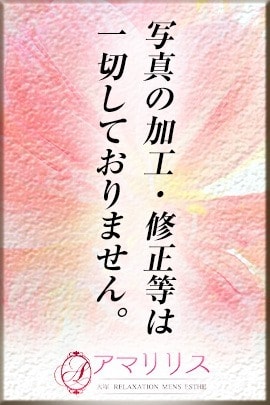 写真の加工・修正等は
一切しておりません。
アマリリス
RELAXATION MENS ESTHE